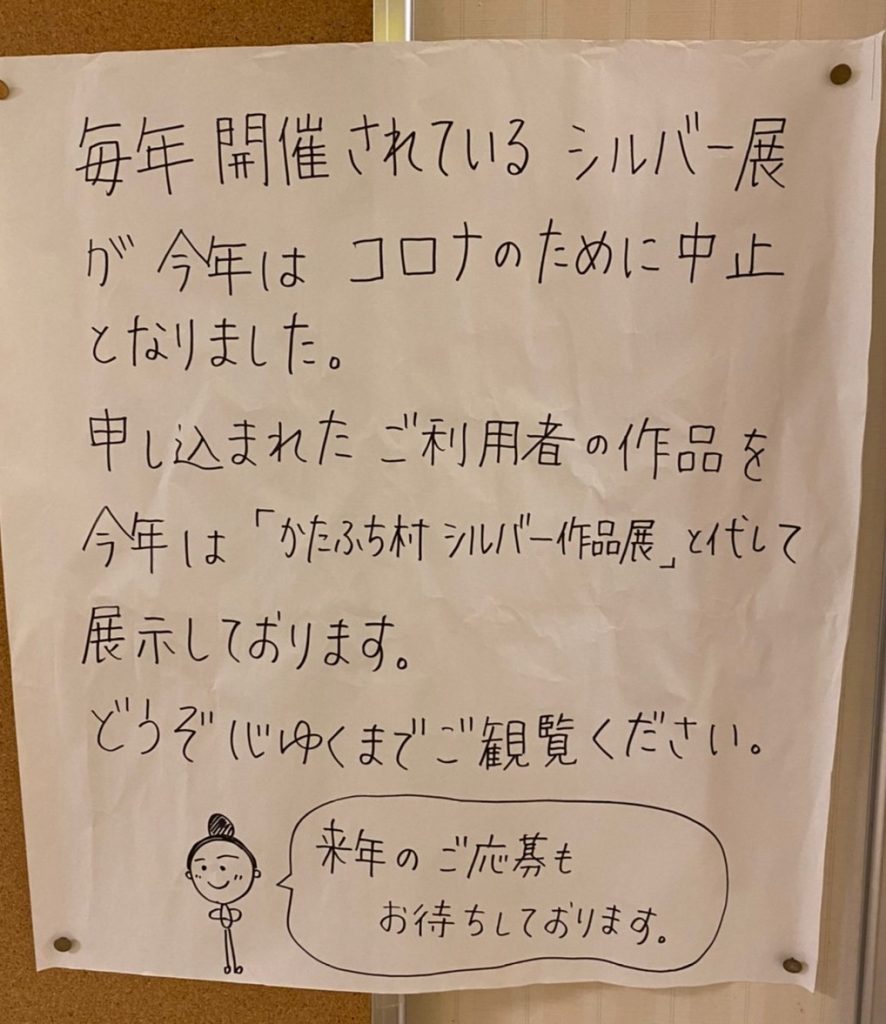 毎年開催されている シルバー展
が 今年は コロナのために中止
となりました。
申し込まれた ご利用者の作品を
今年は「かたふち村 シルバー作品展」と代して
展示しております。
どうぞ心ゆくまでご観覧ください。
来年の ご応募も
お待ちしております。